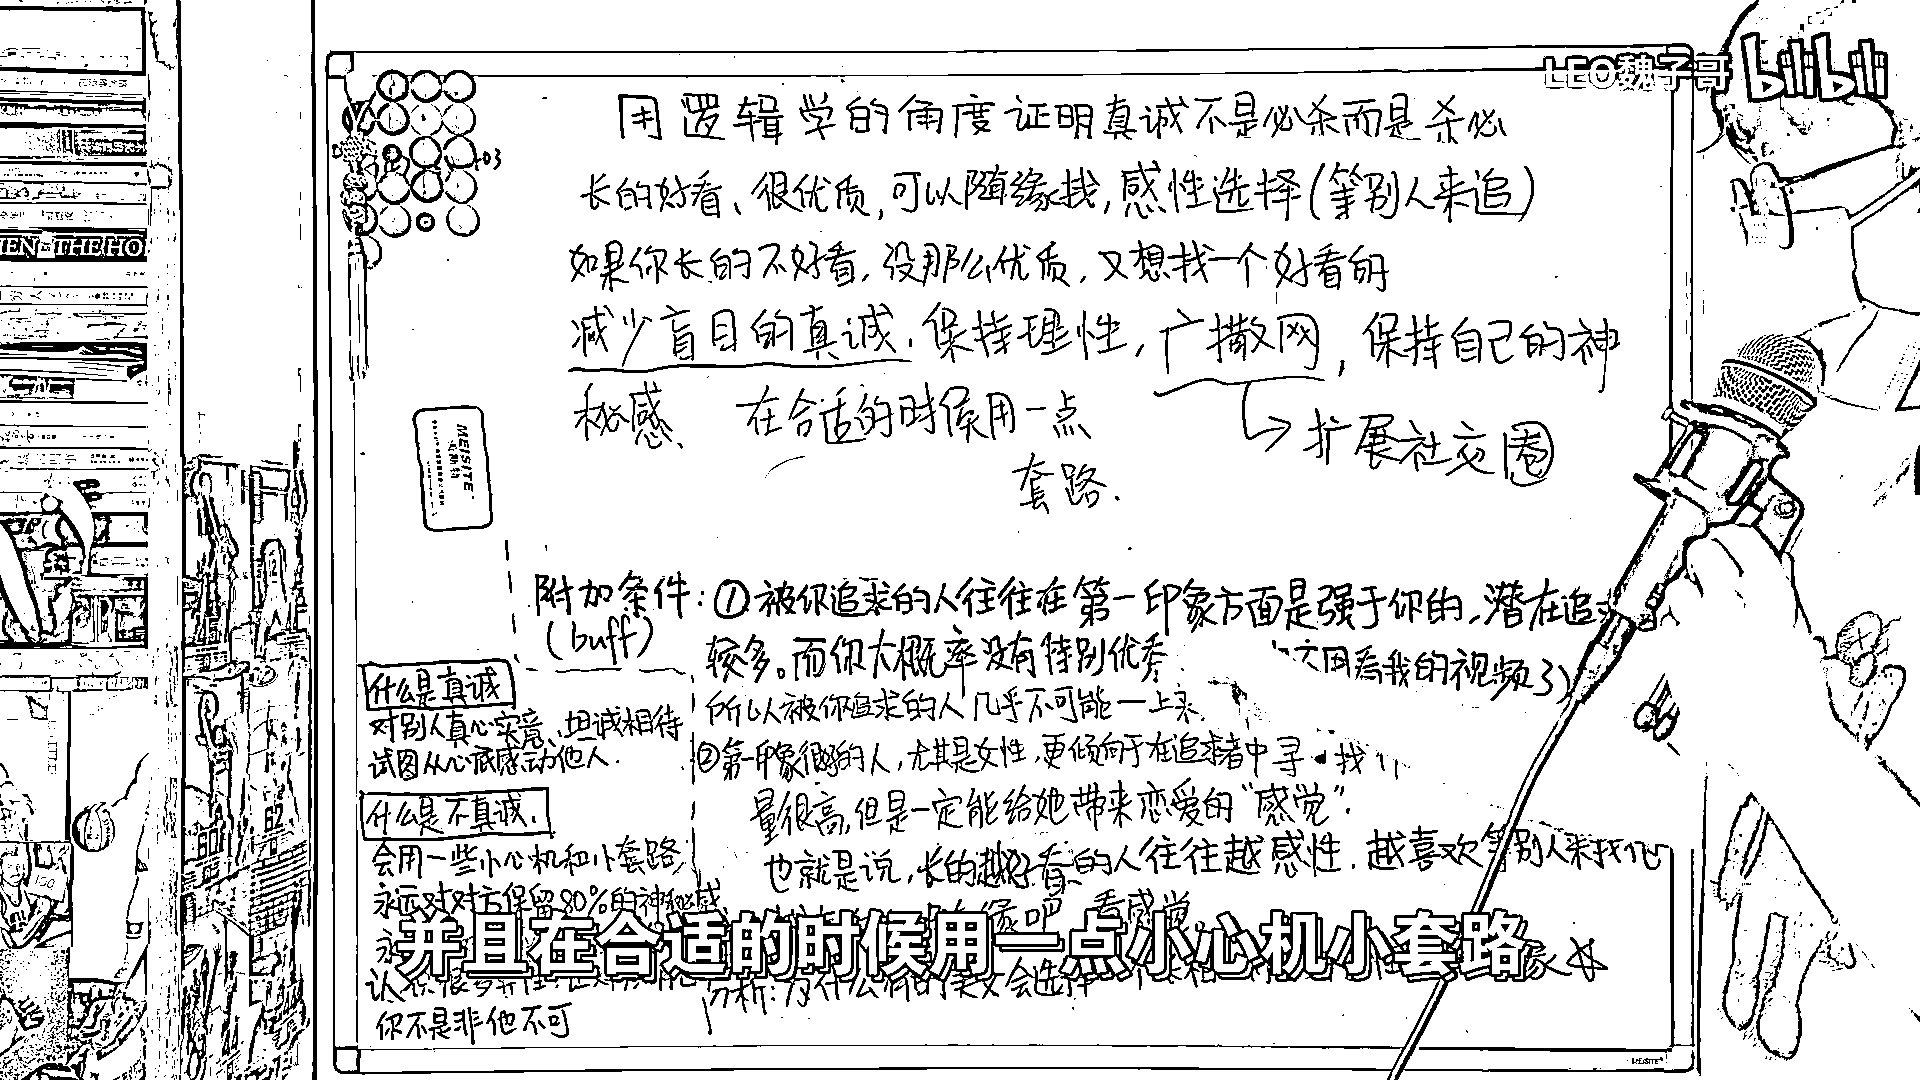 LEO魏子哥 bilibili
用逻辑学的角度证明真诚不是必杀而是杀必
长的好看、很优质,可以随缘找,感性选择(等别人来追)
如果你长的不好看,没那么优质,又想找一个好看的
减少盲目的真诚.保持理性,广撒网,保持自己的神
秘感、在合适的时候用一点
套路.
→扩展社交圈
MEISITE
附加条件:①被你追求的人往往在第一印象方面是强于你的,潜在追
(buff)
较多。而你大概率没有特别优秀
看我的视频了)
所以被你追求的人几乎不可能一上来
②第一印象很好的人,尤其是女性,更倾向于在追求者中寻找
量很高,但是一定能给她带来恋爱的“感觉”.
也就是说,长的越好看的人往往越感性.越喜欢等别人来找他
缘吧 看感觉
分析:为什么有的美女会选择
什么是真诚
对别人真心实意、坦诚相待
试图从心底感动他人.
什么是不真诚.
会用一些小心机和小套路,
永远对对方保留80%的神秘感
你不是非他不可
并且在合适的时候用一点小心机小套路
EN THE HO
MEISITE